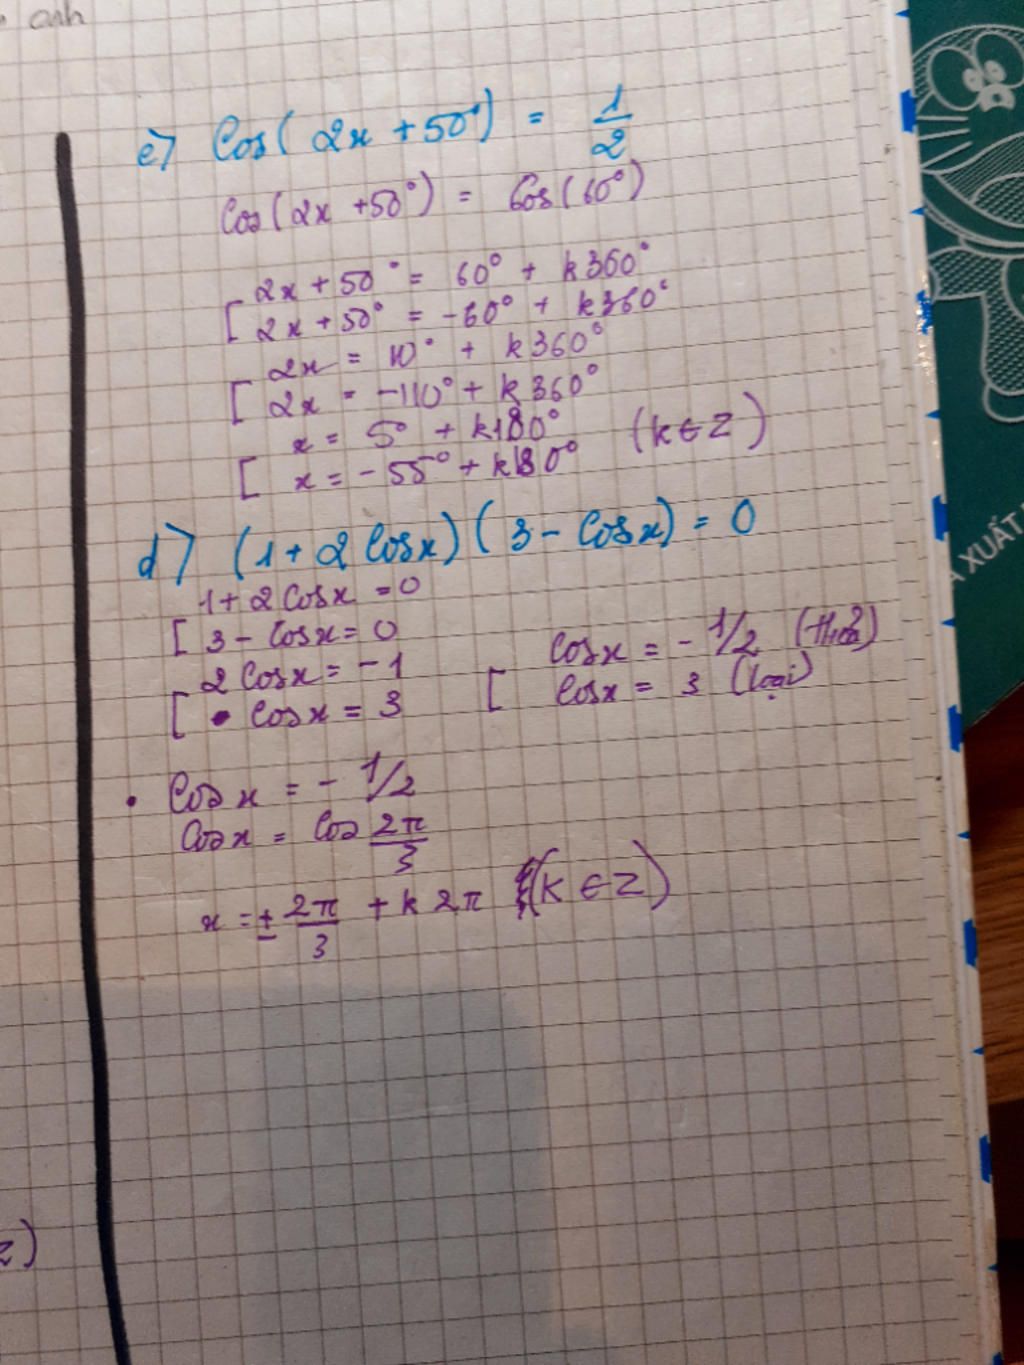 anh
c) Cos(2x + 50°) = 1/2
Cos(2x + 50°) = Cos(60°)
2x + 50° = 60° + k360°
[ 2x + 50° = -60° + k360°
2x = 10° + k360°
[ 2x = -110° + k360°
x = 5° + k180°
[ x = -55° + k180° (k ∈ Z)
d) (1 + 2 Cosx)(3 - Cosx) = 0
1 + 2 Cosx = 0
[ 3 - Cosx = 0
2 Cosx = -1
[ Cosx = 3
Cosx = - 1/2 (thoả)
[ Cosx = 3 (loại)
• Cosx = - 1/2
Cosx = Cos 2π/3
x = ± 2π/3 + k2π (k ∈ Z)
z)
XUẤT